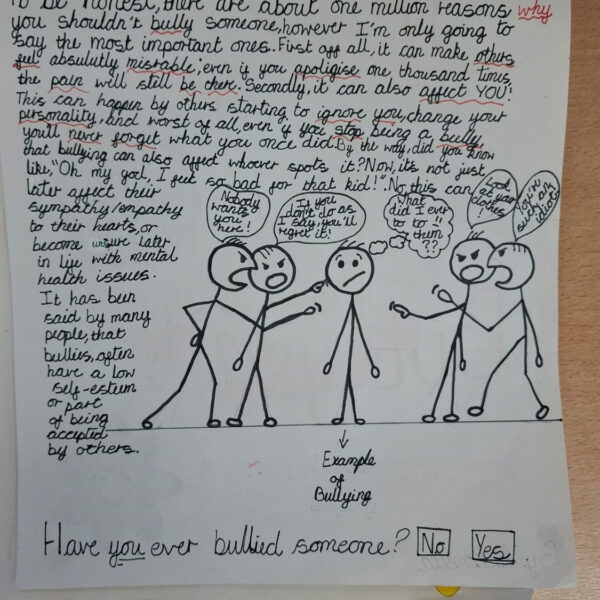 To be honest, there are about one million reasons why
you shouldn't bully someone, however I'm only going to
say the most important ones. First off all, it can make others
feel absulutly misrable; even if you apoligise one thousand times,
the pain will still be there. Secondly, it can also affect YOU!
This can happen by others starting to ignore you, change your
personality, and worst of all, even if you stop being a bully,
you'll never forget what you once did. By the way, did you know
that bullying can also affect whoever spots it? Now, its not just
like, "Oh my god, I feel so bad for that kid!" No, this can
later affect their
sympathy/empathy
to their hearts, or
become unsure later
in life with mental
health issues.
It has been
said by many
people, that
bullies, often
have a low
self-esteem
or part
of being
accepted
by others.
Nobody
wants
you
here!
If you
don't do as
I say, you'll
regret it!
What
did I ever
to to
them
??
Look
at your
clothes
!
You're
such an
idiot!
Example
of
Bullying
Have you ever bullied someone? No Yes